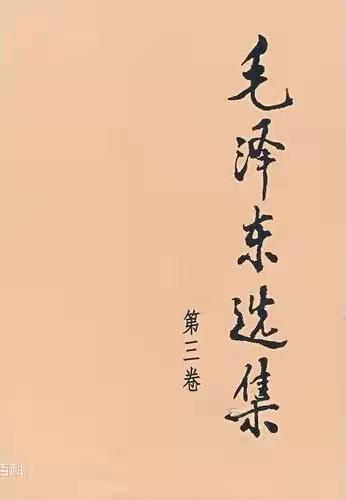 毛泽东选集
第三卷
百科